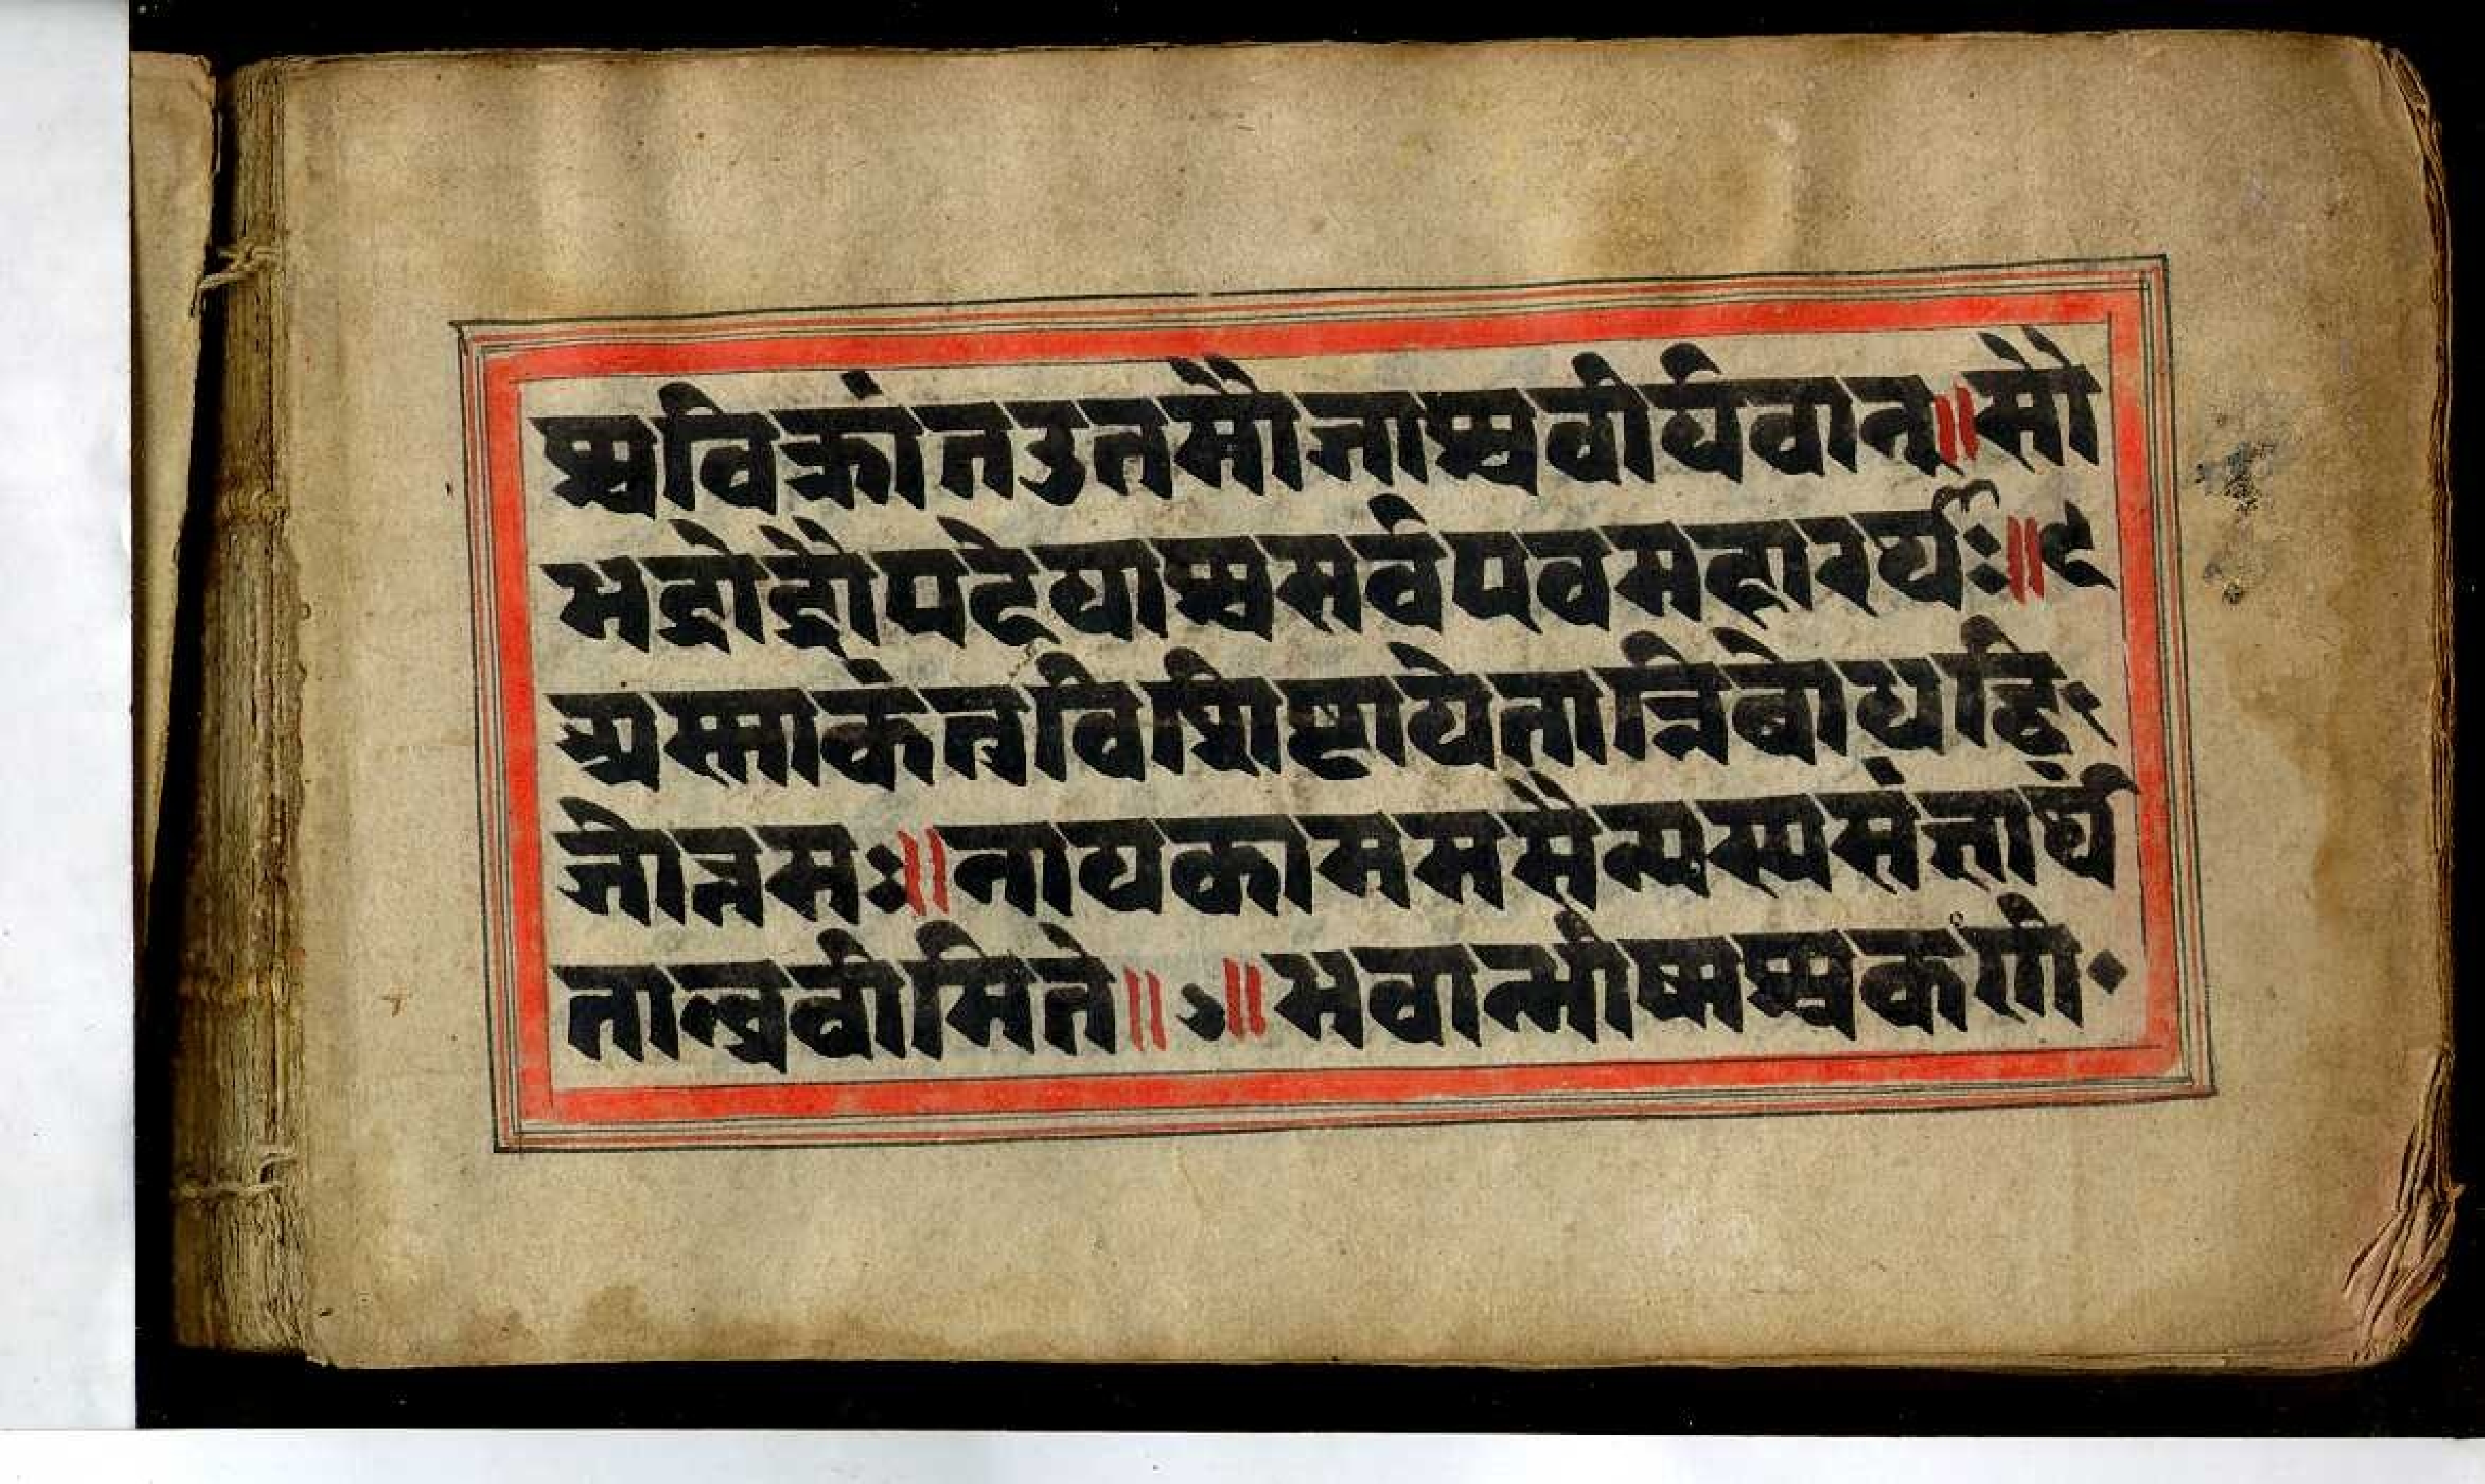 श्चविक्रांतउतमौजाश्चवीर्यवान्॥सौ
भद्रोद्रौपदेयाश्चसर्वएवमहारथाः॥६
अस्माकंतुविशिष्टायेतान्निबोधद्वि
जोत्तमः॥नायकाममसैन्यस्यसंज्ञार्थं
तान्ब्रवीमिते॥७॥भवान्भीष्मश्चकर्णो